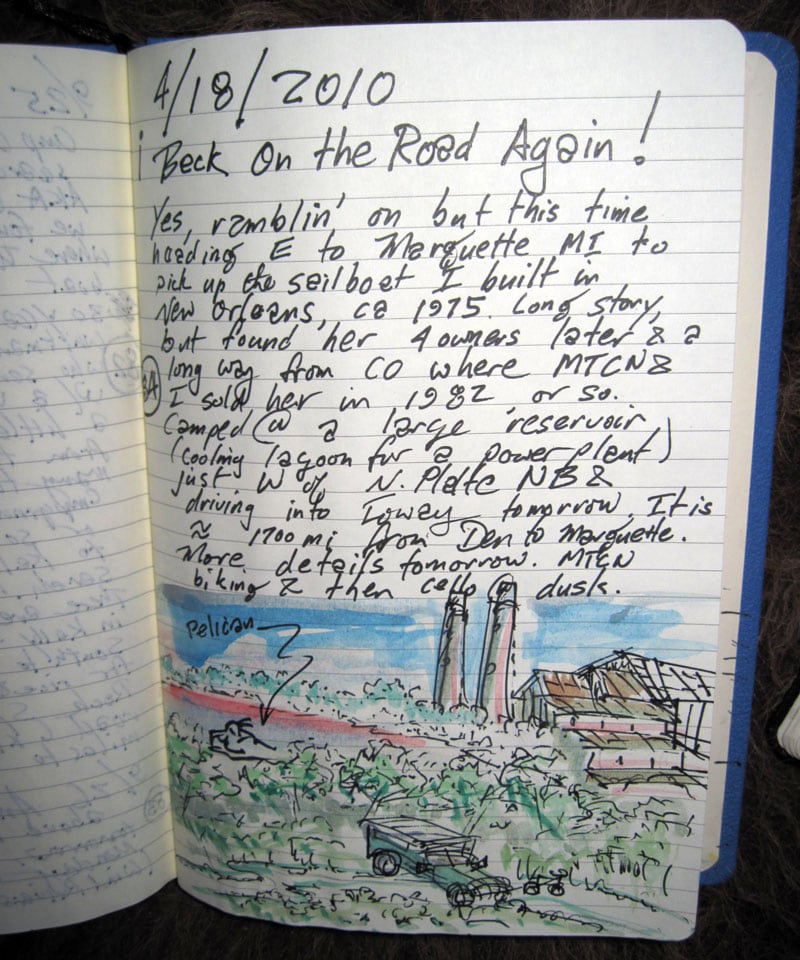 4/18/2010
¡Back On the Road Again!
Yes, ramblin' on but this time
heading E to Marquette MI to
pick up the sailboat I built in
New Orleans, ca 1975. Long story,
but found her 4 owners later & a
long way from CO where MTCN &
I sold her in 1982 or so.
Camped @ a large reservoir
(cooling lagoon for a power plant)
just W of N. Platte NB &
driving into Ioway tomorrow. It is
≈ 1700 mi from Den to Marquette.
More details tomorrow. MTCN
biking & then cello @ dusk.
Pelican